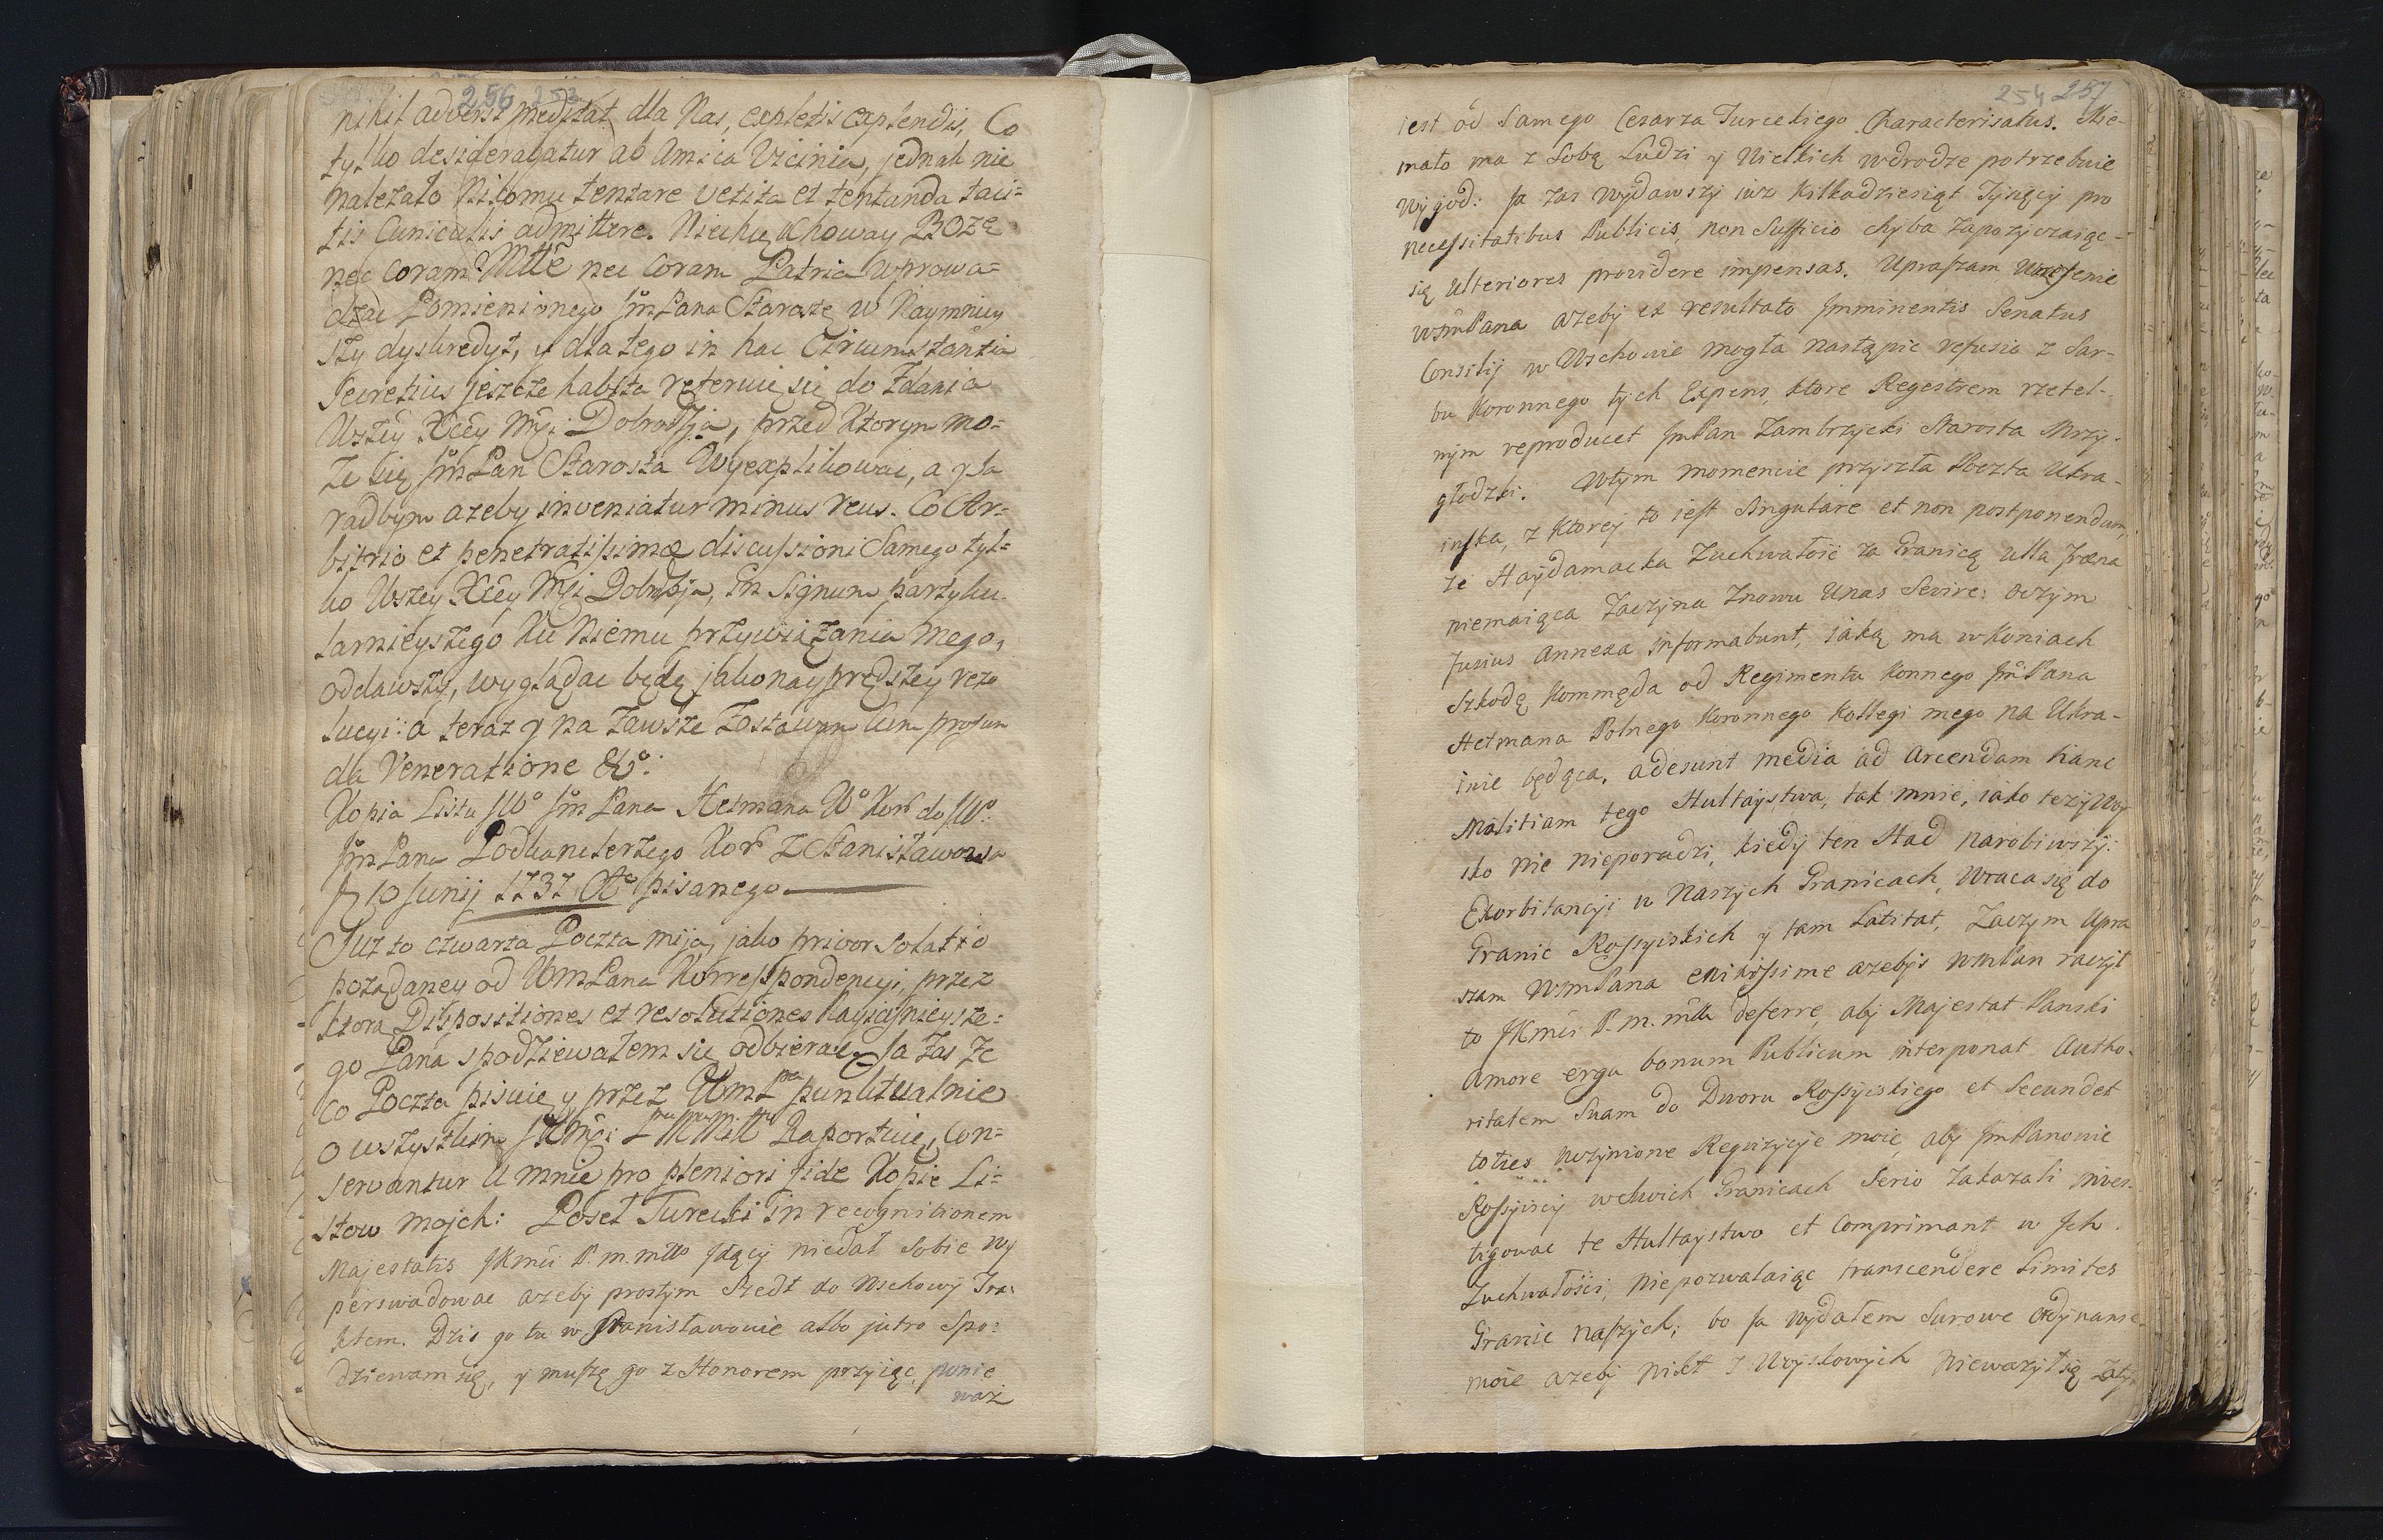 256 253
nihil adversi meditat dla Nas, expletis explendis, Co
tylko desiderabatur ab Amica Vicinia, jednak nie
nalezało Nikomu tentare vetita et tentanda taci=
tis Cuniculis admittere. Niechże Uchoway BOZE
nec coram Mtte nec Coram Patria wprowa=
dzac Pomienionego Jm Pana Starostę w Naymniey
szy dyskredyt, y dla tego in hac Circumstantia
Secretius jeszcze habita referuię się do Zdania
Wszey Xcey Mći Dobrodzja, przed Ktorym mo=
ze się Jm Pan Starosta Wyexplikowac, a y Ja
radbym azeby inveniatur minus reus. Co Ar=
bitrio et penetratissimæ discussioni Samego tyl=
ko Wszey Xcey Mći Dobrodzja, in Signum partyku=
larnieyszego Ku Niemu przywiązania mego,
oddawszy, wyglądac będę jako nayprędszey rezo
lucyi: a teraz y na zawsze Zostawam Cum profun
da Veneratione &c:
Kopia Listu JWo Jm Pana Hetmana Wo Kor do JWo:
Jm Pana Podkanclerzego Kor z Stanisławowa
D 10 Junij 1737 Ao pisanego
Juz to czwarta Poczta mija, jako privor Solatio
pozadaney od WmPana Korresspondencyi, przez
ktora Dispositiones et resolutiones Nayjasnieysze=
go Pana spodziewałem się odbierac. Ja zas ze
co Poczta pisuię y przez WmPna punktualnie
o wszystkim JKMći P M Mttu Raportuię, Con=
servantur U mnie pro pleniori fide Kopie Li=
stow mojch: Poseł Turecki in recognitionem
Majestatis JKmći P. m. mtto Jdący niedał Sobie wy
perswadowac azeby prostym Szedł do Wschowy Tra=
ktem. Dzis go tu w Stanisławowie albo jutro Spo=
dziewam się, y muszę go z Honorem przyiąc, ponie
waz
254 257
iest od Samego Cesarza Tureckiego Characterisatus. Nie=
mało ma z Sobą Ludzi y Wielkich w drodze potrzebuie
wygod: Ja zas wydawszy iuz Kilkadziesiąt Tysięcy pro
necessitatibus Publicis, non Sufficio chyba zapozyczaiąc=
się ulteriores providere impensas. Upraszam Unizenie
WmPana azeby ex resultato Jmminentis Senatus
Consilij w Wschowie mogła nastąpic refusio z Skar=
bu Koronnego tych Expens, ktore Regestrem rzetel=
nym reproducet JmPan Zambrzycki Starosta Mrzy=
głodzki. W tym momencie przyszła Poczta Ukra=
inska, z ktorej to iest Singulare et non postponendum,
ze Haydamacka Zuchwałosc za Granicą ulla fræna
niemaiąca Zaczyna Znowu U nas Sevire: o czym
fusius Annexa informabunt, iaką ma w Koniach
Szkodę Kommęda od Regimentu Konnego Jm Pana
Hetmana Polnego Koronnego Kollegi mego na Ukra=
inie będąca. Adesunt media ad Arcendam hanc
Malitiam tego Hultaystwa, tak mnie, iako tez y Woy
sko nie nieporadzi, kiedy ten Stad narobiwszy
Exorbitancyi w Naszych Granicach, wraca się do
Granic Rossyiskich y tam Latitat, Zaczym Upra
szam WmPana enixissime azebys WmPan raczył
to JKmći P. m. mttu deferre, aby Majestat Panski
Amore erga bonum Publicum interponat Autho=
ritatem Suam do Dworu Rossyiskiego et Secundet
toties uczynione Requizycye moie, aby Jm Panowie
Rossyiscy w swoich Granicach Serio zakazali inves=
tigowac te Hultaystwo et Comprimant w Jch
Zuchwałosci, niepozwalaiąc transcendere Limites
Granic naszych; bo Ja wydałem Surowe Ordynanse
moie azeby nikt z Woyskowych niewazył się Zaty